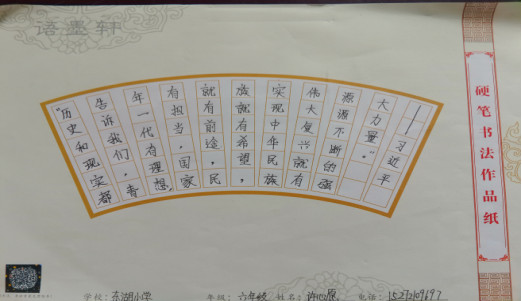 语墨轩
硬笔书法作品纸
“历史和现实都
告诉我们，青
年一代有理想，
有担当，国家
就有前途，民
族就有希望，
实现中华民族
伟大复兴就有
源源不断的强
大力量。”
——习近平
学校：东湖小学 年级：六年级 姓名：许 原 电话：